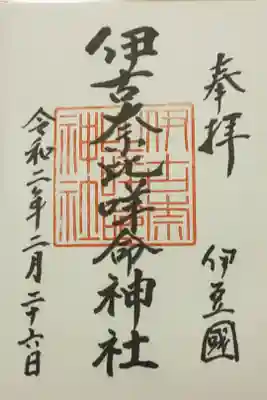 奉拝
伊豆國
伊古奈比咩命神社
令和二年二月二十六日
伊古奈
神社